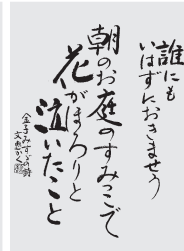 誰にも
いはずにおきませう
朝のお庭のすみつこで
花がほろりと
泣いたこと
金子みすゞの詩
文恵かく